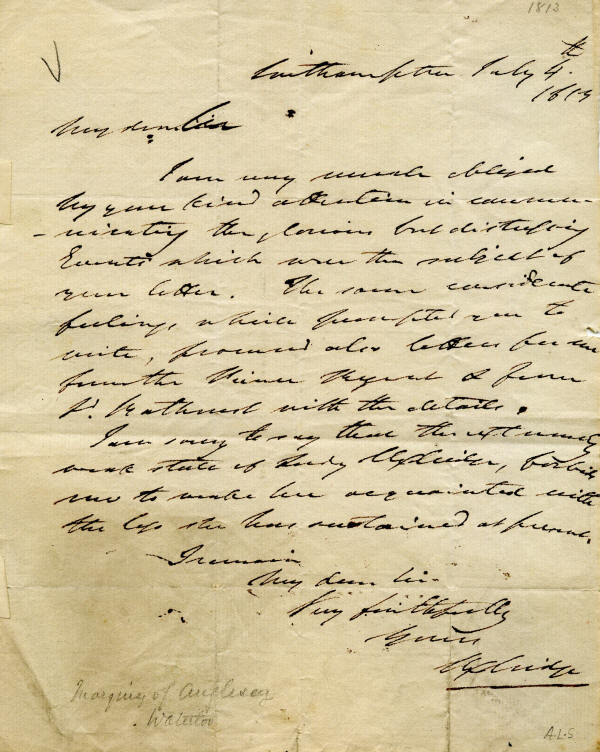 1813
Southampton July 4.th
1813
My dear Sir
I am very much obliged
by your kind attention in commu-
-nicating the glorious but distressing
Events which were the subject of
your letter. The same considerate
feelings, which prompted you to
write, procured also letters for me
from the Prince Regent & from
Ld. Bathurst with the details.
I am sorry to say that the extremely
weak state of Lady Uxbridge, forbids
me to make her acquainted with
the loss she has sustained at present.
I remain
My dear Sir
Very faithfully
Yours
Uxbridge
Marquis of Anglesey
Waterloo
A.L.S